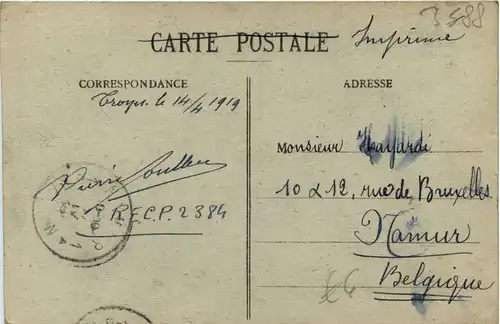 3488
CARTE POSTALE Imprimé
CORRESPONDANCE
Troyes le 14/4 1919
Pierre
R.E.C.P. 2384
ADRESSE
Monsieur Hayardi
10 & 12, rue de Bruxelles
Namur
Belgique